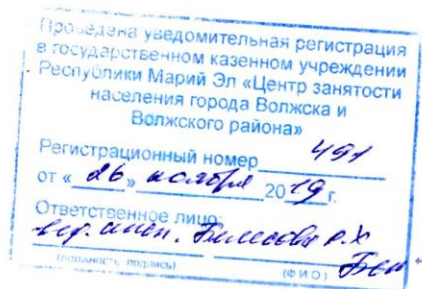 Проведена уведомительная регистрация
в государственном казенном учреждении
Республики Марий Эл «Центр занятости
населения города Волжска и
Волжского района»
Регистрационный номер 491
от « 26 » ноября 2019 г.
Ответственное лицо:
вед. инсп.
(должность, подпись) (Ф И О)